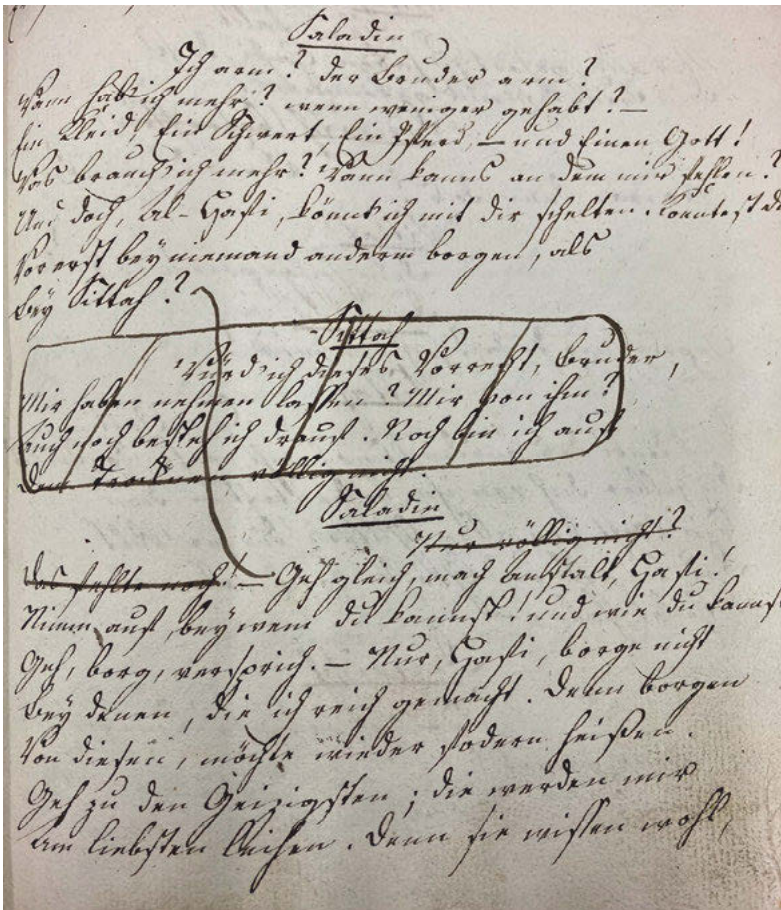 Saladin
Ich arm? der Bruder arm?
Wann hab' ich mehr? wenn weniger gehabt? —
Ein Kleid, Ein Schwert, Ein Pferd, — und Einen Gott!
Was brauch' ich mehr? Wann kanns an dem mir fehlen?
Und doch, Al-Hafi, könnt' ich mit dir schelten. Konntest du
Vorerst bey niemand anderm borgen, als
Bey Sittah?
Sittah
Würd' ich dieses Vorrecht, Bruder,
Mir haben nehmen lassen? Mir von ihm?
Auch noch besteh' ich drauf. Noch bin ich auf
Dem Trocknen völlig nicht.
Saladin
Nur völlig nicht?
Das fehlte noch! — Geh gleich, mach Anstalt, Hafi!
Nimm auf, bey wem du kannst! und wie du kannst
Geh, borg, versprich. — Nur, Hafi, borge nicht
Bey denen, die ich reich gemacht. Denn borgen
Von diesen, möchte wieder fodern heißen.
Geh zu den Geizigsten; die werden mir
Am liebsten leihen. Denn sie wissen wohl,